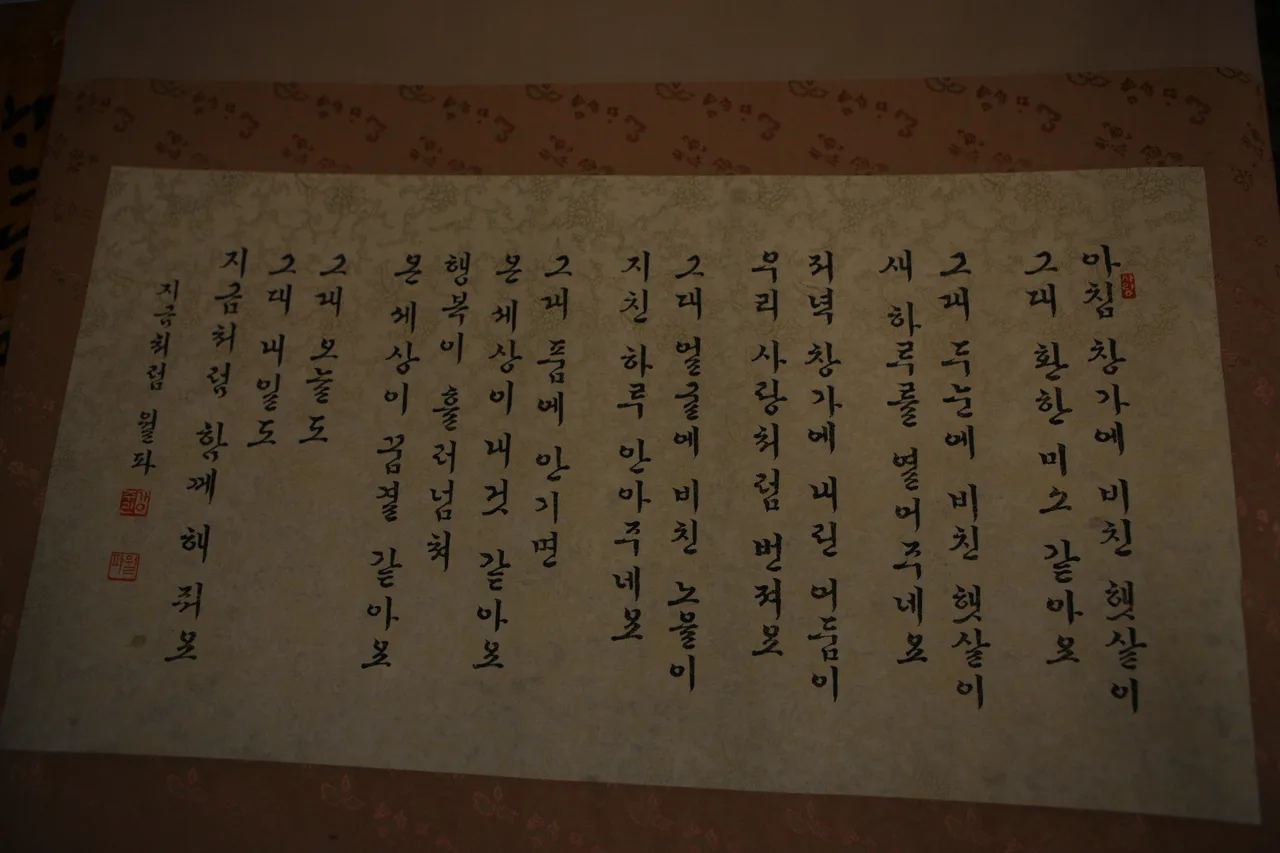 아침 창가에 비친 햇살이
그대 환한 미소 같아요
그대 두눈에 비친 햇살이
새 하루를 열어주네요
저녁 창가에 내린 어둠이
우리 사랑처럼 번져요
그대 얼굴에 비친 노을이
지친 하루 안아주네요
그대 품에 안기면
온 세상이 내것 같아요
행복이 흘러넘쳐
온 세상이 꿈결 같아요
그대 오늘도
그대 내일도
지금처럼 함께 해 줘요
지금처럼 월파
월파